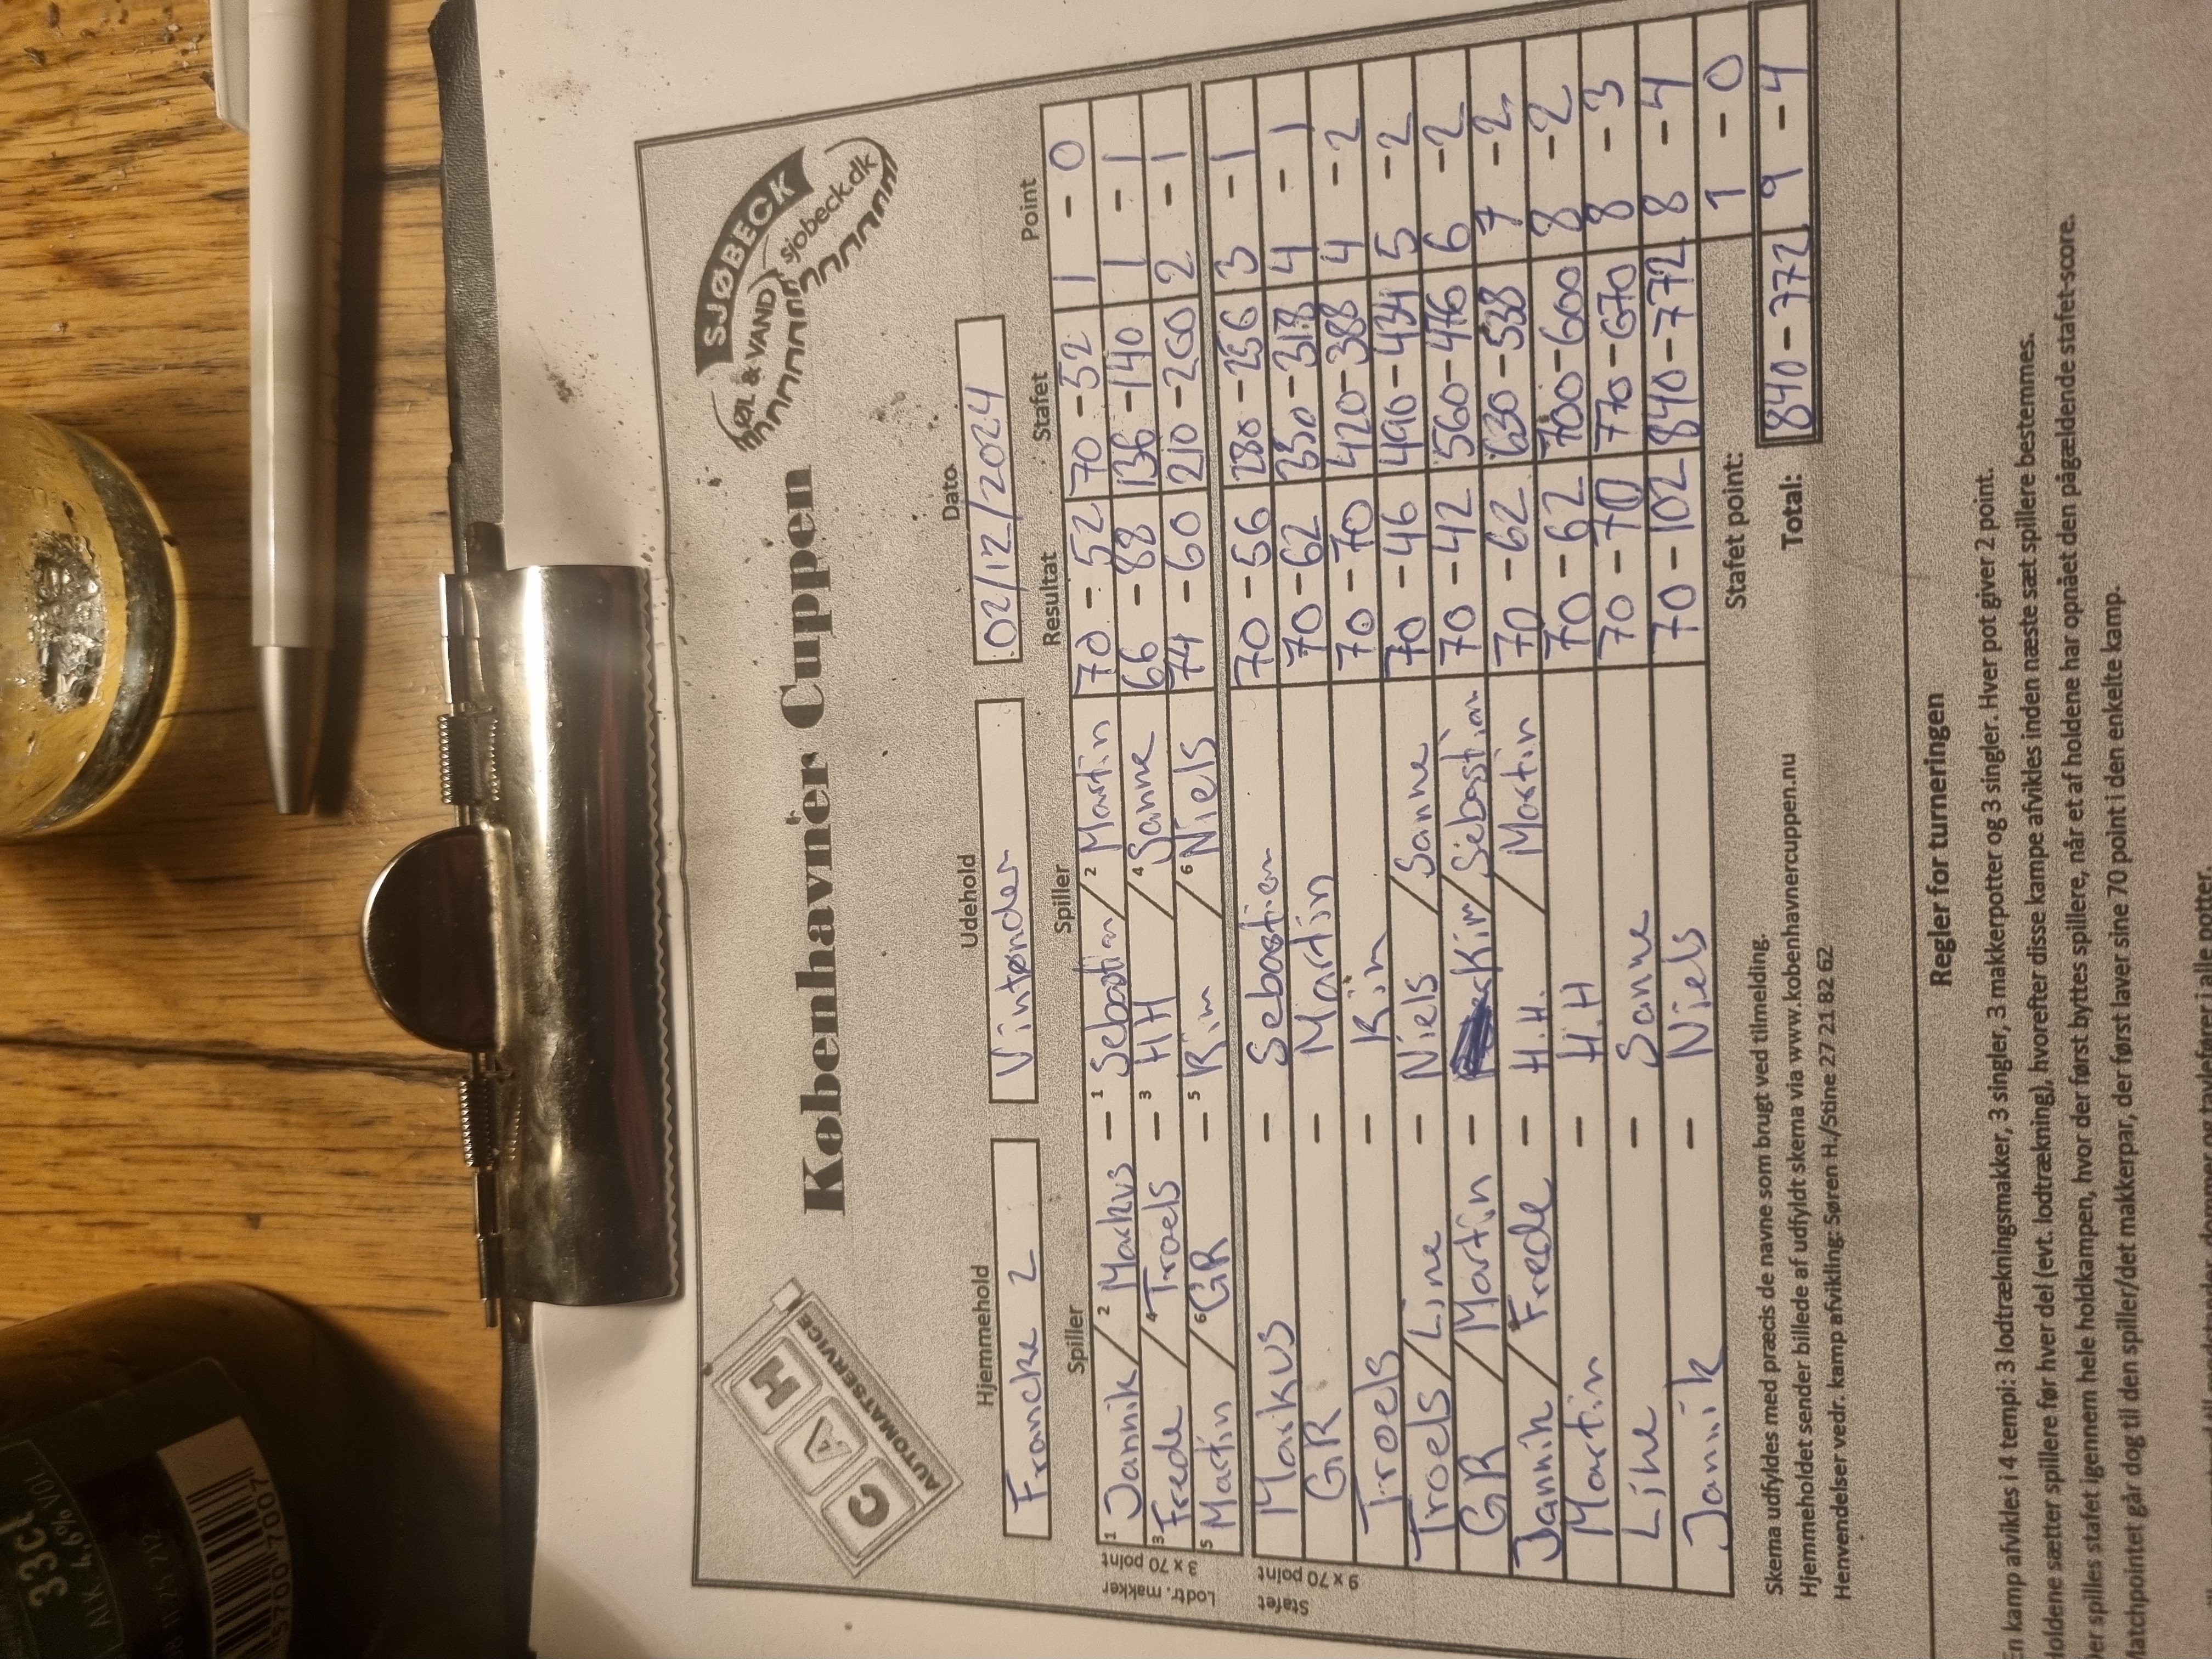 CAH
AUTOMATSERVICE
Københavner Cuppen
SJØBECK
ØL & VAND
sjobeck.dk
Hjemmehold Udehold Dato
Francke 2 Vintønder 02/12/2024
Spiller Spiller Resultat Stafet Point
Lodtr. makker
3 x 70 point
1 Jannik / 2 Markus - 1 Sebastian / 2 Martin 70 - 52 70 - 52 1 - 0
3 Frede / 4 Troels - 3 HH / 4 Sanne 66 - 88 136 - 140 1 - 1
5 Martin / 6 GR - 5 Kim / 6 Niels 74 - 60 210 - 200 2 - 1
Stafet
9 x 70 point
Markus - Sebastian 70 - 56 280 - 256 3 - 1
GR - Martin 70 - 62 350 - 318 4 - 1
Troels - Kim 70 - 70 420 - 388 4 - 2
Troels / Line - Niels / Sanne 70 - 46 490 - 434 5 - 2
GR / Martin - Kim / Sebastian 70 - 42 560 - 476 6 - 2
Jannik / Frede - H.H. / Martin 70 - 62 630 - 538 7 - 2
Martin - H.H 70 - 62 700 - 600 8 - 2
Line - Sanne 70 - 70 770 - 670 8 - 3
Jannik - Niels 70 - 102 840 - 772 8 - 4
Stafet point: 1 - 0
Total: 840 - 772 9 - 4
Skema udfyldes med præcis de navne som brugt ved tilmelding.
Hjemmeholdet sender billede af udfyldt skema via www.kobenhavnercuppen.nu
Henvendelser vedr. kamp afvikling: Søren H./Stine 27 21 82 62
Regler for turneringen
En kamp afvikles i 4 tempi: 3 lodtrækningsmakker, 3 singler, 3 makkerpotter og 3 singler. Hver pot giver 2 point.
Holdene sætter spillere før hver del (evt. lodtrækning), hvorefter disse kampe afvikles inden næste sæt spillere bestemmes.
Der spilles stafet igennem hele holdkampen, hvor der først byttes spillere, når et af holdene har opnået den pågældende stafet-score.
Matchpointet går dog til den spiller/det makkerpar, der først laver sine 70 point i den enkelte kamp.
33cL
ALK. 4,6% VOL.
5700 7007